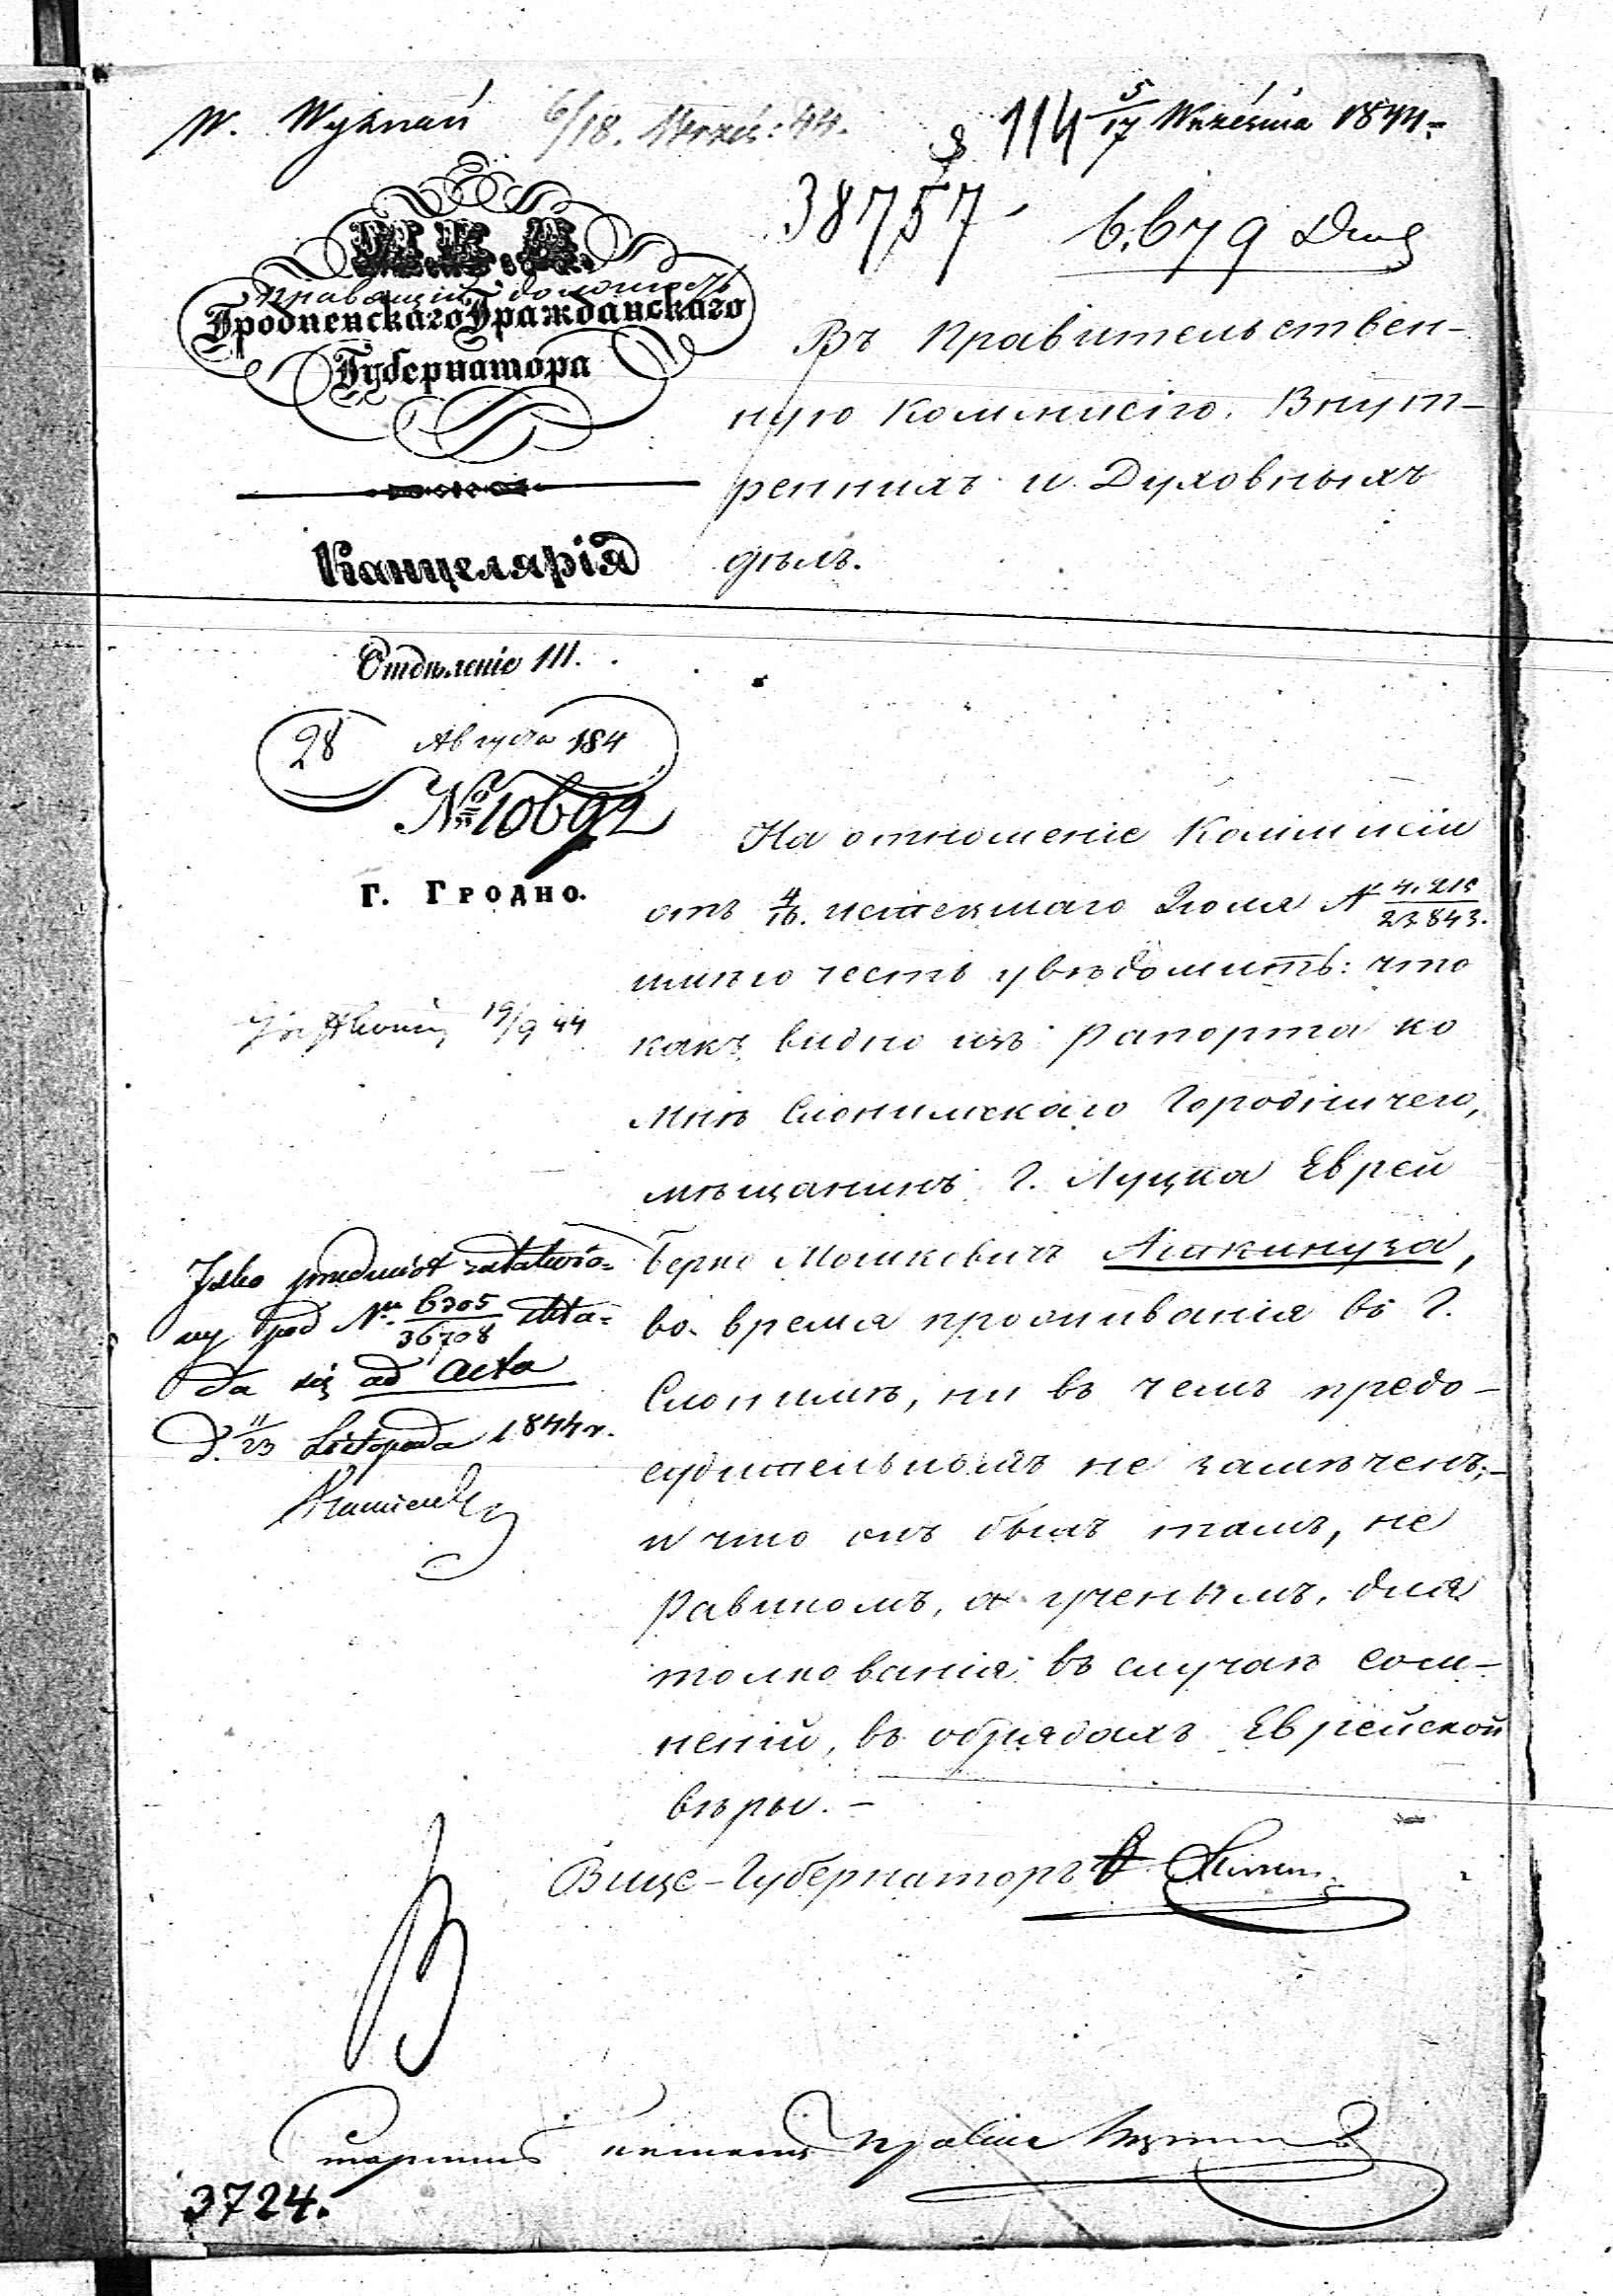 W. Wyznań 6/18. Wrześ: 44.
114 5/17 Września 1844.
38757 6,679
М.В.Д.
Правящій должность
Гродненскаго Гражданскаго
Губернатора
Канцелярія
Отдѣленіе III.
28 Августа 184
№ 10692
Г. Гродно.
Въ Правительствен-
ную Коммисію Внут-
реннихъ и Духовныхъ
дѣлъ.
На отношеніе Коммисіи
отъ 4/16. истекшаго Іюля №
23843.
имѣю честь увѣдомить: что
какъ видно изъ рапорта ко
мнѣ Слонимскаго Городничего,
мѣщанинъ г. Луцка Еврей
Берко Мошковичъ Ашкинуза,
во время проживанія въ г.
Слонимѣ, ни въ чемъ предо-
судительномъ не замѣченъ;-
и что онъ былъ тамъ, не
Равиномъ, а ученымъ, для
толкованія въ случаѣ сом-
неній, въ обрядахъ Еврейской
вѣры.-
Вице-Губернаторъ
19/9 44
Jako przedmiot załatwio-
ny pod Nr. 6305/36708 skła-
da się ad acta
d. 11/23 Listopada 1844 r.
Старшій
3724.